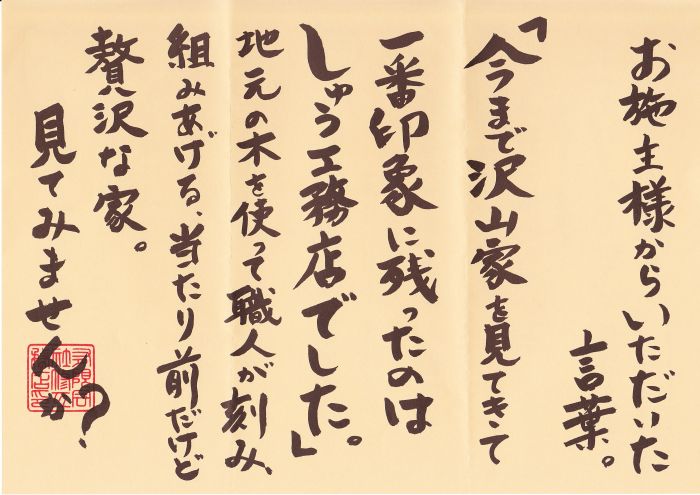 お施主様からいただいた
言葉。
「今まで沢山家を見てきて
一番印象に残ったのは
しゅう工務店でした。」
地元の木を使って職人が刻み、
組みあげる、当たり前だけど
贅沢な家。
見てみませんか？